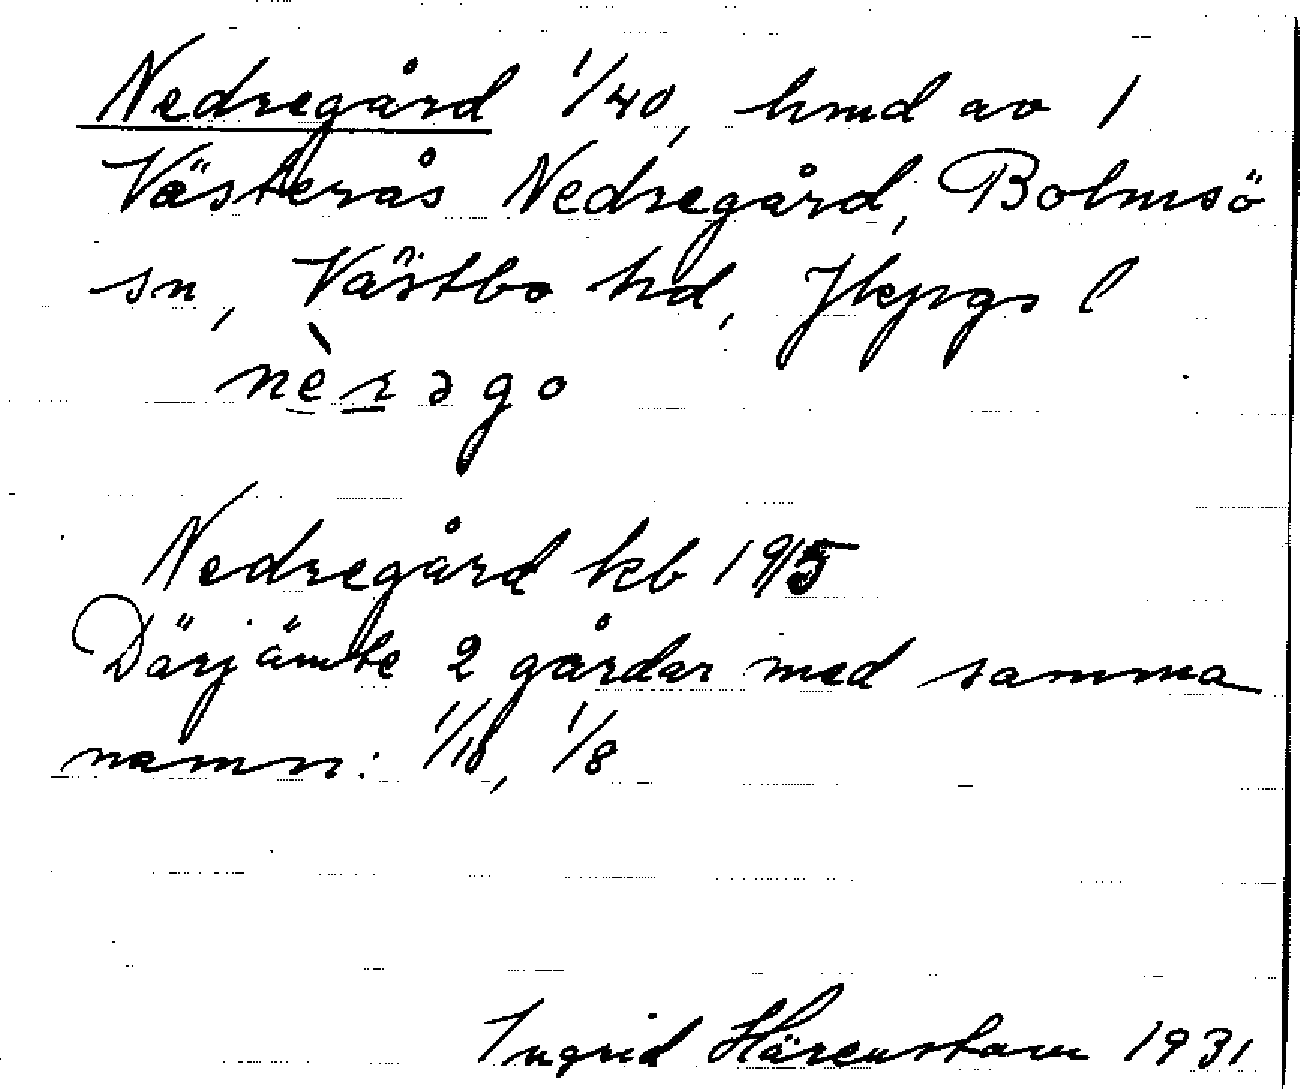 Nedregård 1/40, hmd av 1
Västerås Nedregård, Bolmsö
sn, Västbo hd, Jkpgs l
nèrəgo
Nedregård kb 1915
Därjämte 2 gårdar med samma
namn: 1/10, 1/8
Ingrid Härenstam 1931